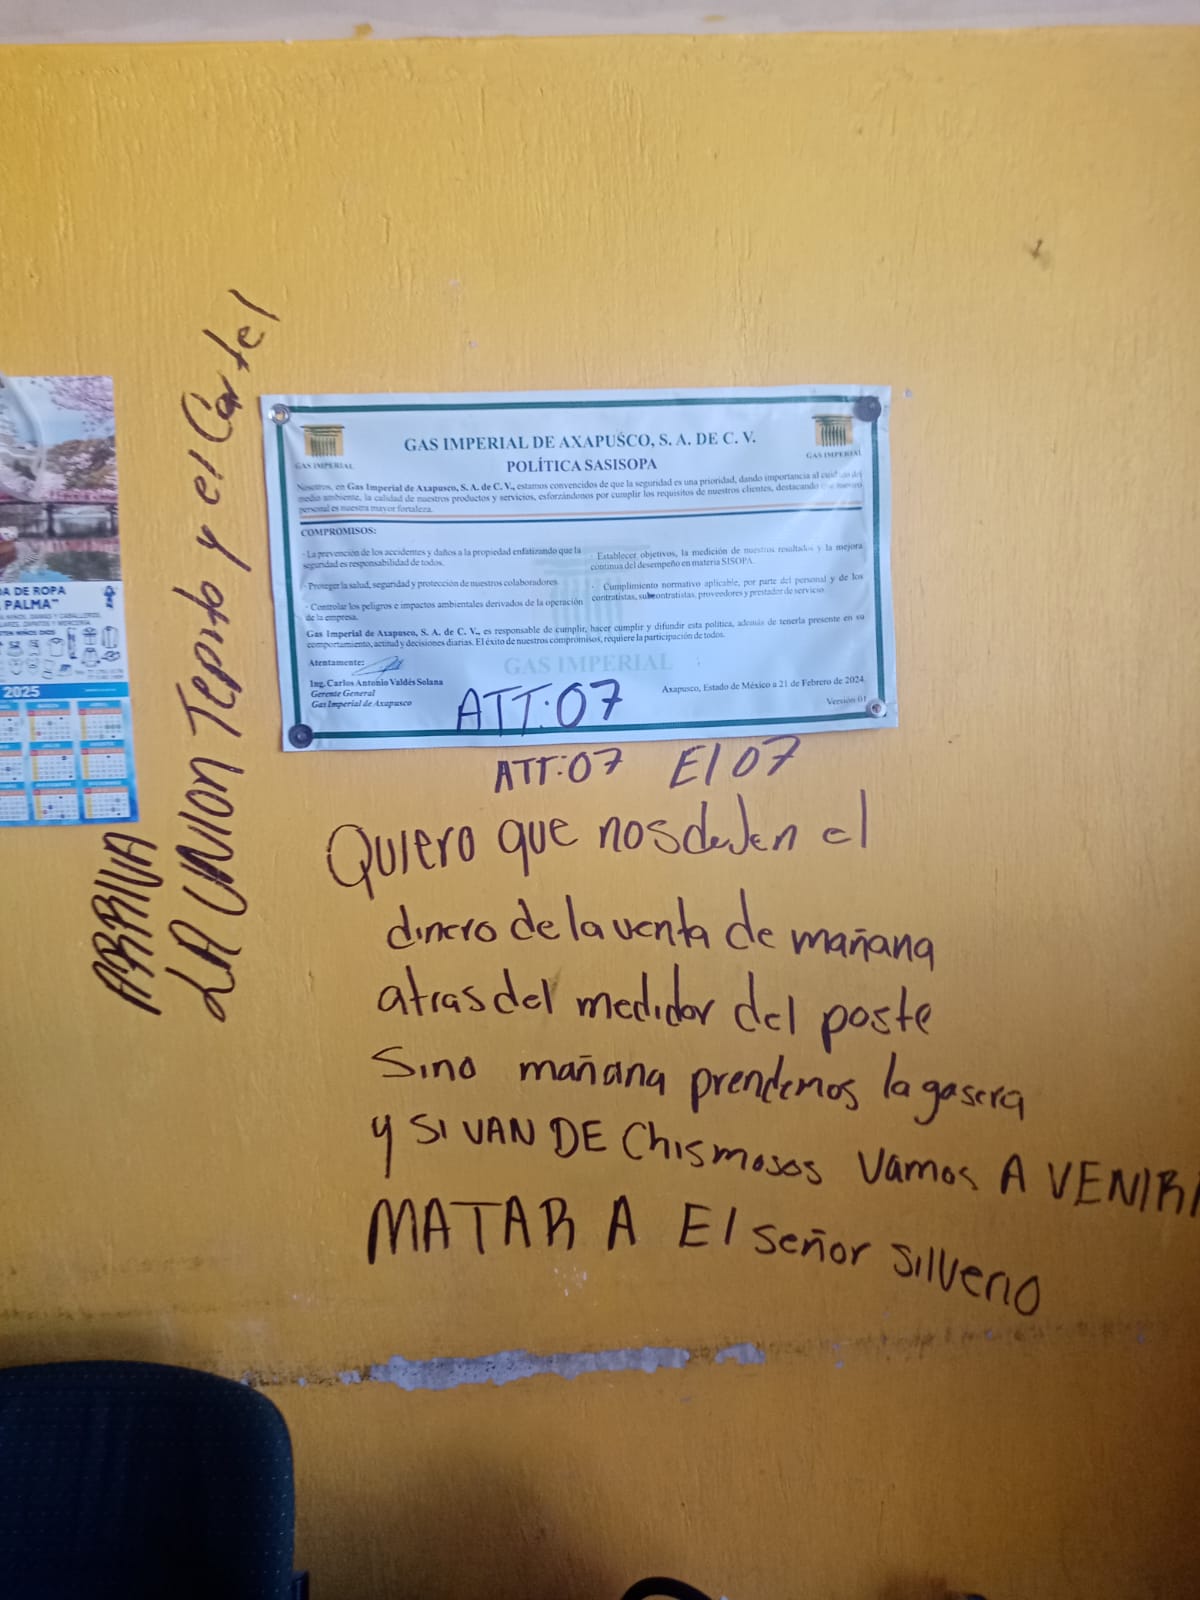 ARRIVA
LA UNION Tepito y el Cartel
DA DE ROPA
PALMA"
2025
GAS IMPERIAL
GAS IMPERIAL
GAS IMPERIAL DE AXAPUSCO, S. A. DE C. V.
POLÍTICA SASISOPA
Nosotros, en Gas Imperial de Axapusco, S. A. de C. V., estamos convencidos de que la seguridad es una prioridad, dando importancia al cuidado del
medio ambiente, la calidad de nuestros productos y servicios, esforzándonos por cumplir los requisitos de nuestros clientes, destacando que nuestro
personal es nuestra mayor fortaleza.
COMPROMISOS:
· La prevención de los accidentes y daños a la propiedad enfatizando que la
seguridad es responsabilidad de todos.
· Proteger la salud, seguridad y protección de nuestros colaboradores
· Controlar los peligros e impactos ambientales derivados de la operación
de la empresa.
· Establecer objetivos, la medición de nuestros resultados y la mejora
continua del desempeño en materia SISOPA.
· Cumplimiento normativo aplicable, por parte del personal y de los
contratistas, subcontratistas, proveedores y prestador de servicio.
Gas Imperial de Axapusco, S. A. de C. V., es responsable de cumplir, hacer cumplir y difundir esta política, además de tenerla presente en su
comportamiento, actitud y decisiones diarias. El éxito de nuestros compromisos, requiere la participación de todos.
Atentamente:
GAS IMPERIAL
Ing. Carlos Antonio Valdés Solana
Gerente General
Gas Imperial de Axapusco
Axapusco, Estado de México a 21 de Febrero de 2024.
Versión 01
ATT:07
ATT:07 El 07
Quiero que nosdejen el
dinero de la venta de mañana
atras del medidor del poste
Sino mañana prendemos la gasera
y SI VAN DE Chismosos Vamos A VENIR A
MATAR A El señor silverio